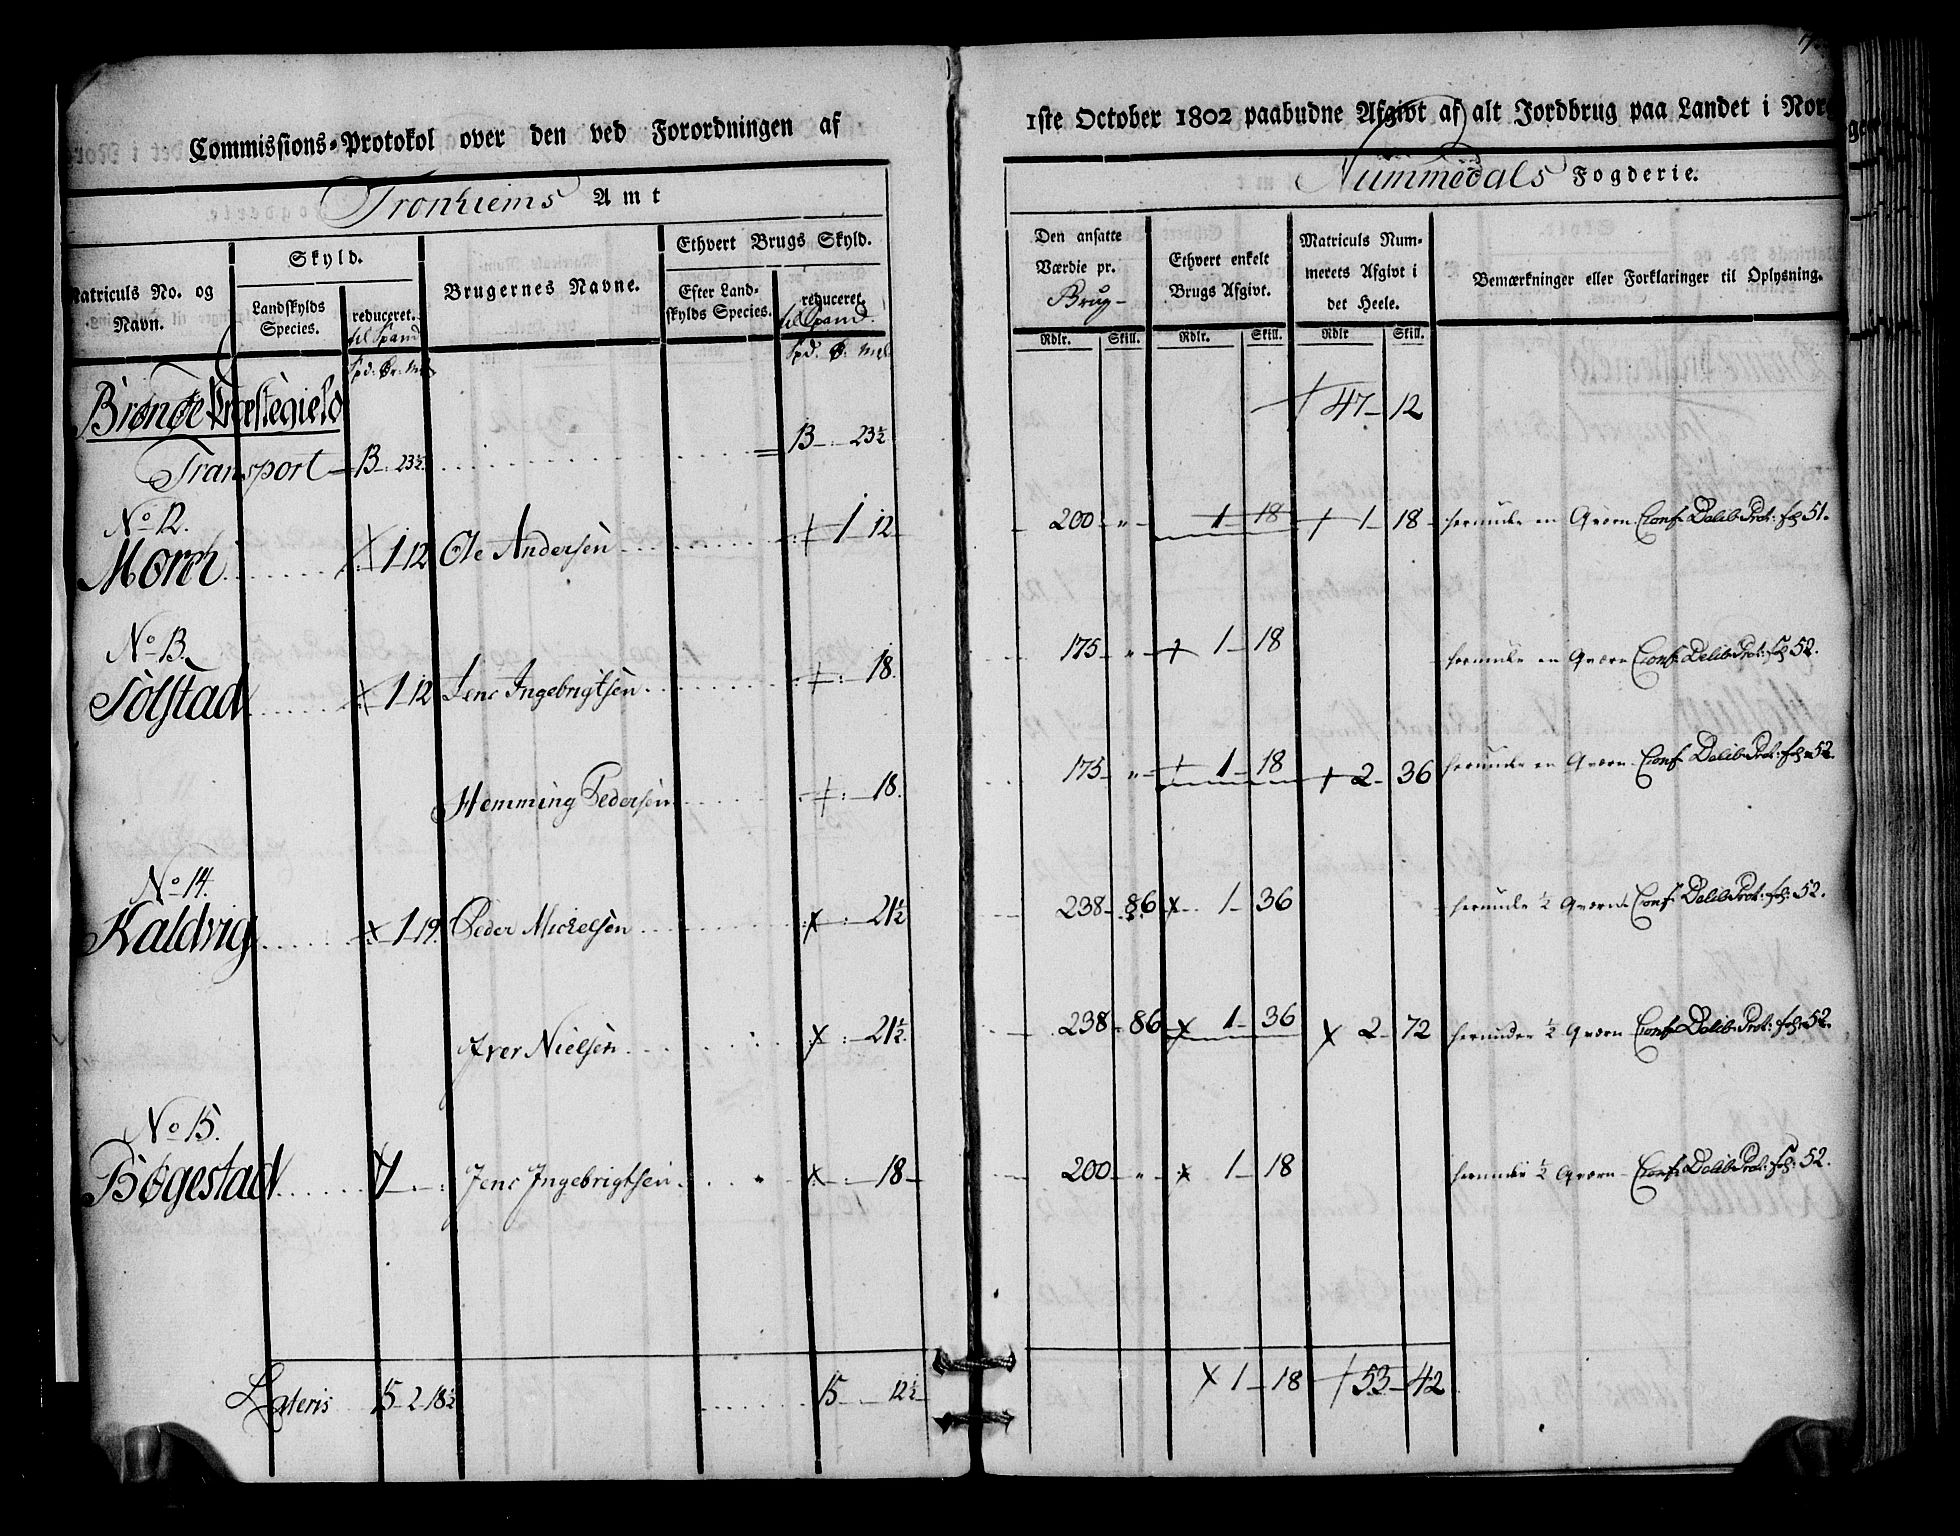 Commissions-Protokol over den ved Forordningen af 1ste October 1802 paabudne Afgivt af alt Jordbrug paa Landet i Nor
Tronhiems Amt
Nummedals Fogderie.
Matriculs No. og Navn.
Skyld.
Landskylds Species.
reduceret. til Spand
Brugernes Navne.
Ethvert Brugs Skyld.
Efter Landskylds Species.
reduceret. til Spand.
Den ansatte Værdie pr. Brug
Ethvert enkelt Brugs Afgivt.
Matriculs Nummerets Afgivt i det Heele.
Bemærkninger eller Forklaringer til Oplysning.
Rdlr. Skill. Rdlr. Skill. Rdlr Skill.
Brønøe Præstegield
+ 47 - 12
Transport 13 - 23½ 13 - 23½
No 12.
Morch 1 12 Ole Andersen + 1 12 200 - „ - 1 - 18 + 1 - 18 herunder en Qværn Conf. Delib. Prot: fol: 51.
No 13.
Solstad 1 12 Jens Ingebrigtsen + : 18. 175 - „ - + 1 - 18 herunder en Qværn Conf. Delib. Prot: fol: 52.
Hemming Pedersen + : 18. 175 - „ - + 1 - 18 + 2 - 36 herunder en Qværn Conf. Delib. Prot: fol: 52.
No 14.
Kaldvig x 1 - 19. Peder Michelsen x : 21½ 238 - 86 x 1 - 36 herunder ½ Qværn Conf. Delib. Prot: fol: 52.
Iver Nielsen x : 21½. 238 - 86 x 1 - 36 x 2 - 72 herunder ½ Qværn Conf. Delib. Prot: fol: 52.
No 15.
Bøgestad 1 - : Jens Ingebrigtsen x - : - 18 200 - „ - x 1 - 18 herunder ½ Qværn Conf. Delib. Prot: fol: 52.
Lateris 15 - 2 - 18½ 15 12½ x 1 - 18 + 53 - 42